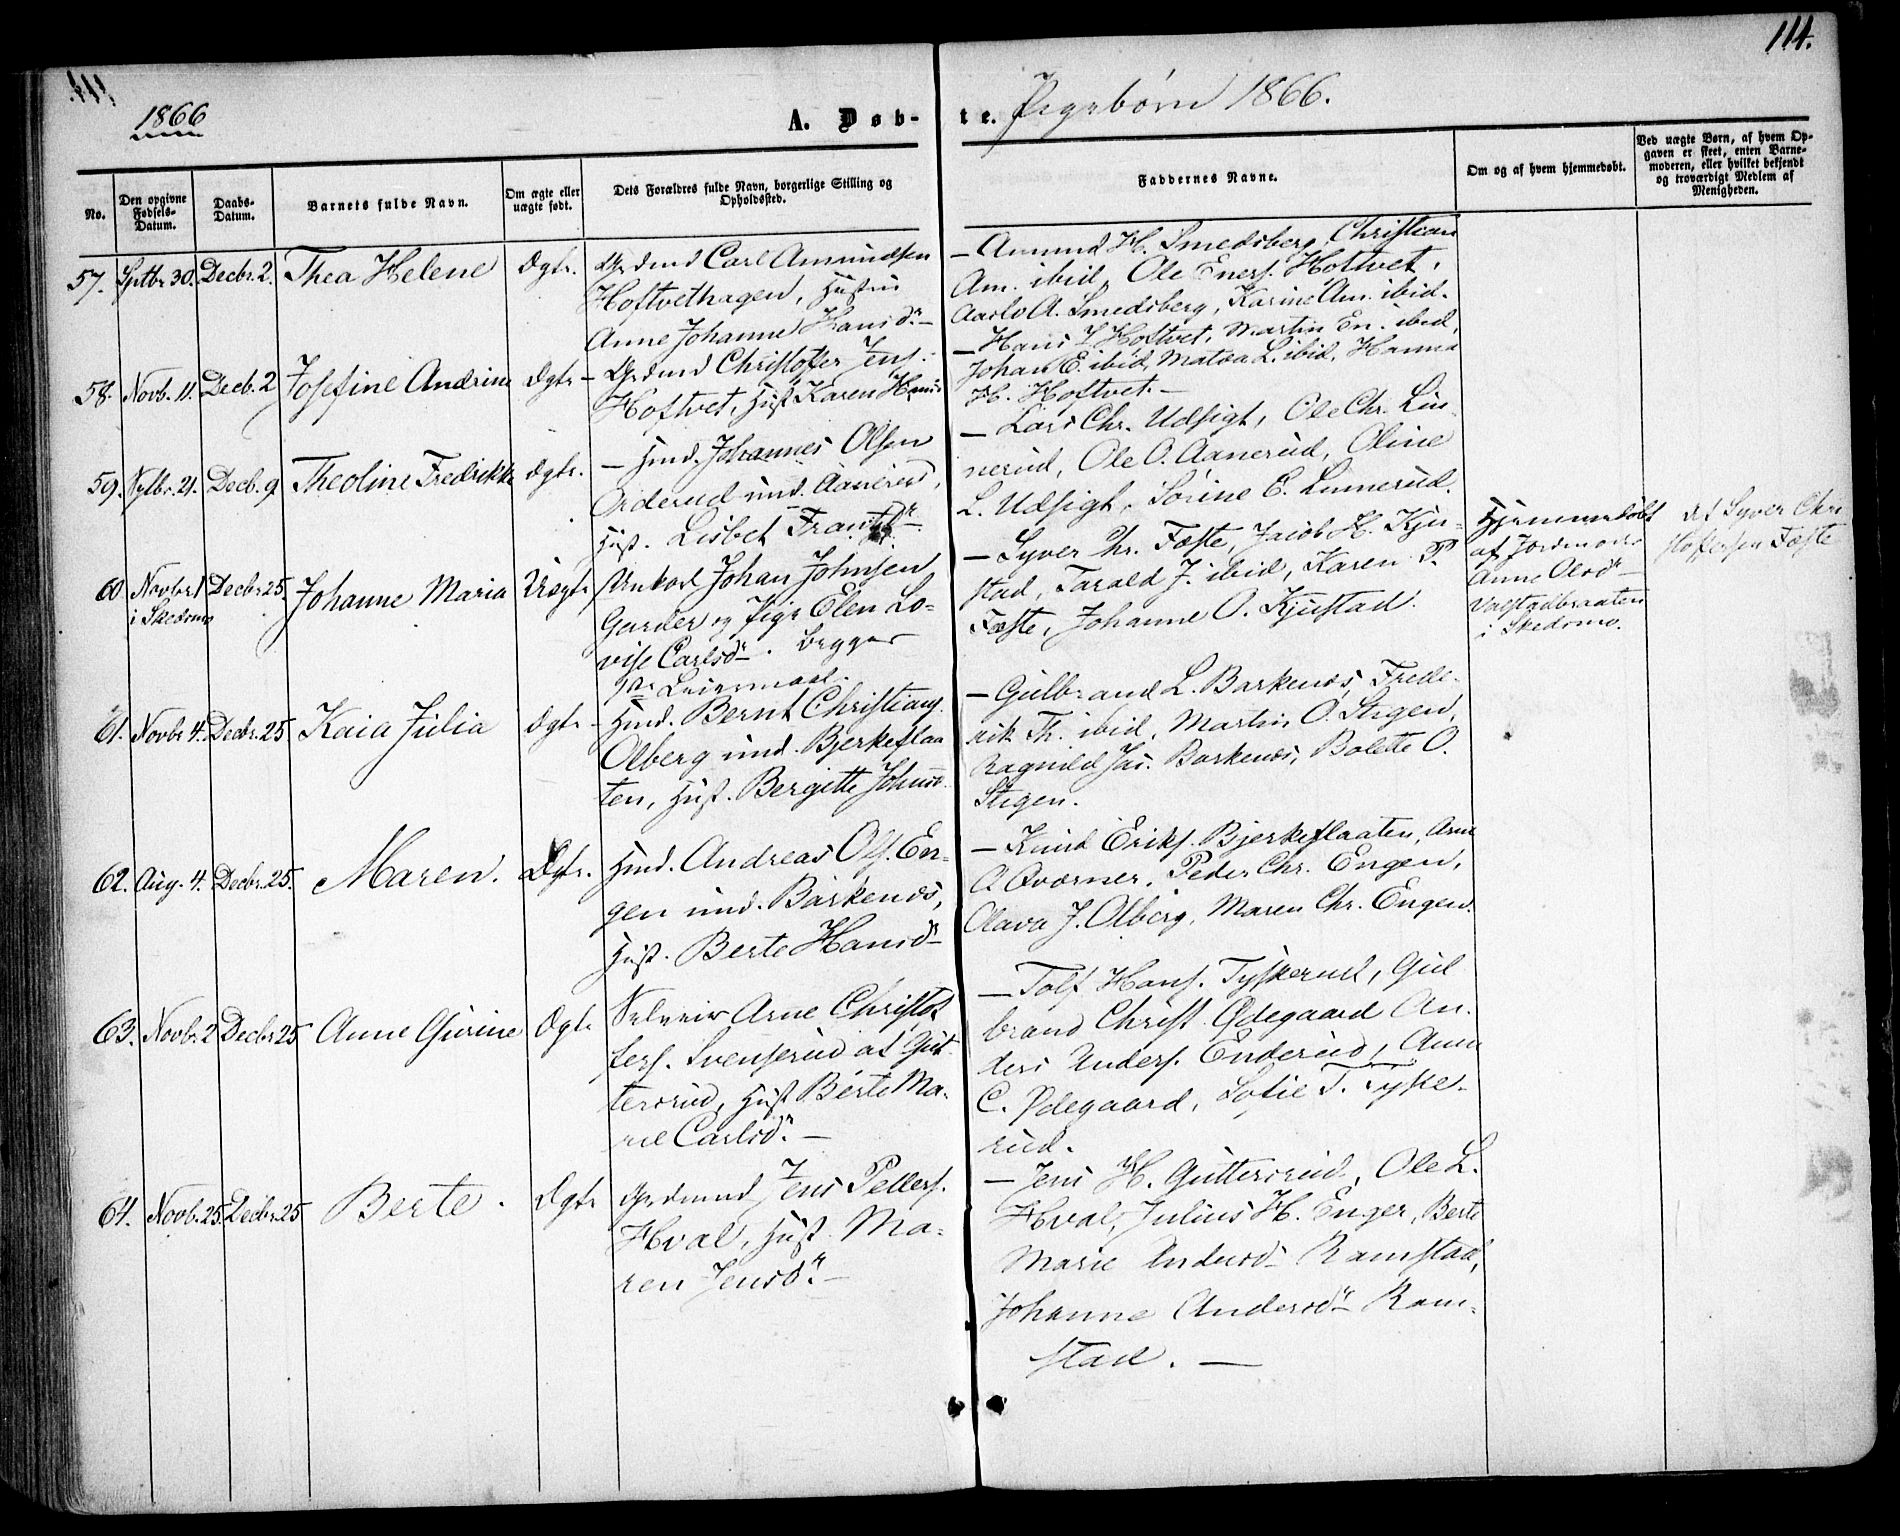 114.
1866
A. Døb-
te. Pigebørn 1866.
No.
Den opgivne Fødsels-Datum.
Daabs-Datum.
Barnets fulde Navn.
Om ægte eller uægte født.
Dets Forældres fulde Navn, borgerlige Stilling og Opholdssted.
Faddernes Navne.
Om og af hvem hjemmedøbt.
Ved uægte Børn, af hvem Opgaven er skeet, enten Barnemoderen, eller hvilket bekjendt og troværdigt Medlem af Menigheden.
57. Sptbr. 30. Decbr. 2. Thea Helene Ægte.
Grdmd Carl Amundsen
Hoftvethagen, Hustru
Anne Johanne Hansdr. –
– Amund H. Smedsberg, Christian
Am. ibid, Ole Eners. Hoftvet,
A. Smedsberg, Karine Am. ibid.
58. Novb. 11. Decb. 2 Josefine Andrine Ægte –
Grdmd Christoffer Jens.
Hoftvet, Hust. Karen Hans
– Hans L Hoftvet, Martin En. ibid,
Johan E. ibid, L. ibid, Hanna
H. Hoftvet. –
59. 21. Decb. 9. Theoline Fredrikke Ægte.
– Hmd. Johannes Olsen
Orderud und. Aanerud,
Hust. Lisbet Frantzdr.
– Lars Chr. Udsigt, Ole Chr. Lin-
nerud, Ole O. Aanerud, Oline
L. Udsigt, Sørine E. Linnerud.
60. Novbr. 1 i Skedsmo Decbr. 25. Johanne Maria Uægte
Ungkarl Johan Johnsen
Garder og Pige Elen Lo-
vise Carlsdr. Begges
1ste Leiermaal.
– Syver Chr. Foste, Jacob H. Kju-
stad, Tarald J. ibid, Karen P.
Foste, Johanne O. Kjustad.
Hjemmedøbt
af Jordmoder
Anne Olsdr –
Valstadbraaten
i Skedsmo.
Af Syver Chri
stoffersen Foste
61. Novbr 4. Decbr. 25. Kaia Julia Ægte –
Hmd. Bernt Christians.
Olberg und. Bjerkeflaa
ten, Hust. Bergitte Johnsd.
– Gulbrand L. Barkenæs, Frede-
rik Th. ibid, Martin O. Stegen,
Ragnild Jac. Barkenæs, Bolette O.
Stegen.
62. Aug. 4. Decbr. 25. Maren. Ægte.
Hmd. Andreas Ols. En-
gen und. Barkenæs,
Hust. Berte Hansdr
– Knud Eriks. Bjerkeflaaten, Arne
A Qværner, Peder Chr. Engen,
Olava J. Olberg, Maren Chr. Engen.
63. Novbr. 2 Decbr. 25 Anne Gurine Ægte
Selveier Arne Christof
fers. Svenserud af Gut-
tersrud, Hust Berte Ma-
rie Carlsdr. –
– Tolf Hans. Tyskerud, Gul
brand Christ. Ødegaard An-
ders Anders. Enderud, Anne
C. Ødegaard, Sofie T. Tyske-
rud.
64. Novb. 25. Decbr. 25 Berte. Ægte
Grdmd Jens Petters.
Hval, Hust. Ma-
ren Jensdr. –
– Jens H. Guttersrud, Ole L.
Hval, Julius H. Enger, Berte
Marie Andersd Ramstad,
Johanne Andersdr Ram-
stad. –